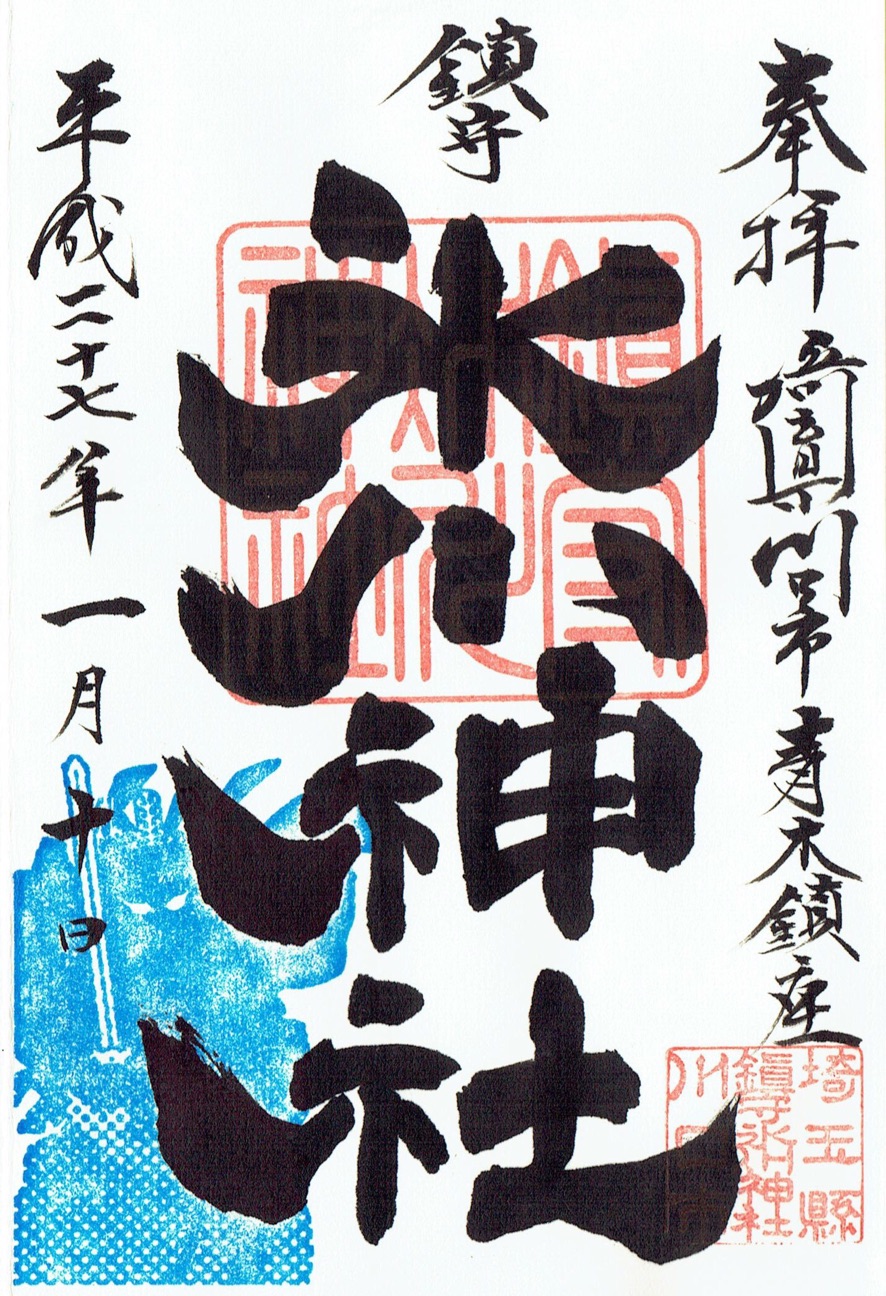 奉拝 埼玉県川口市青木鎮座
鎮守
氷川神社
平成二十七年一月十日
埼玉縣
鎮守氷川神社
川口市